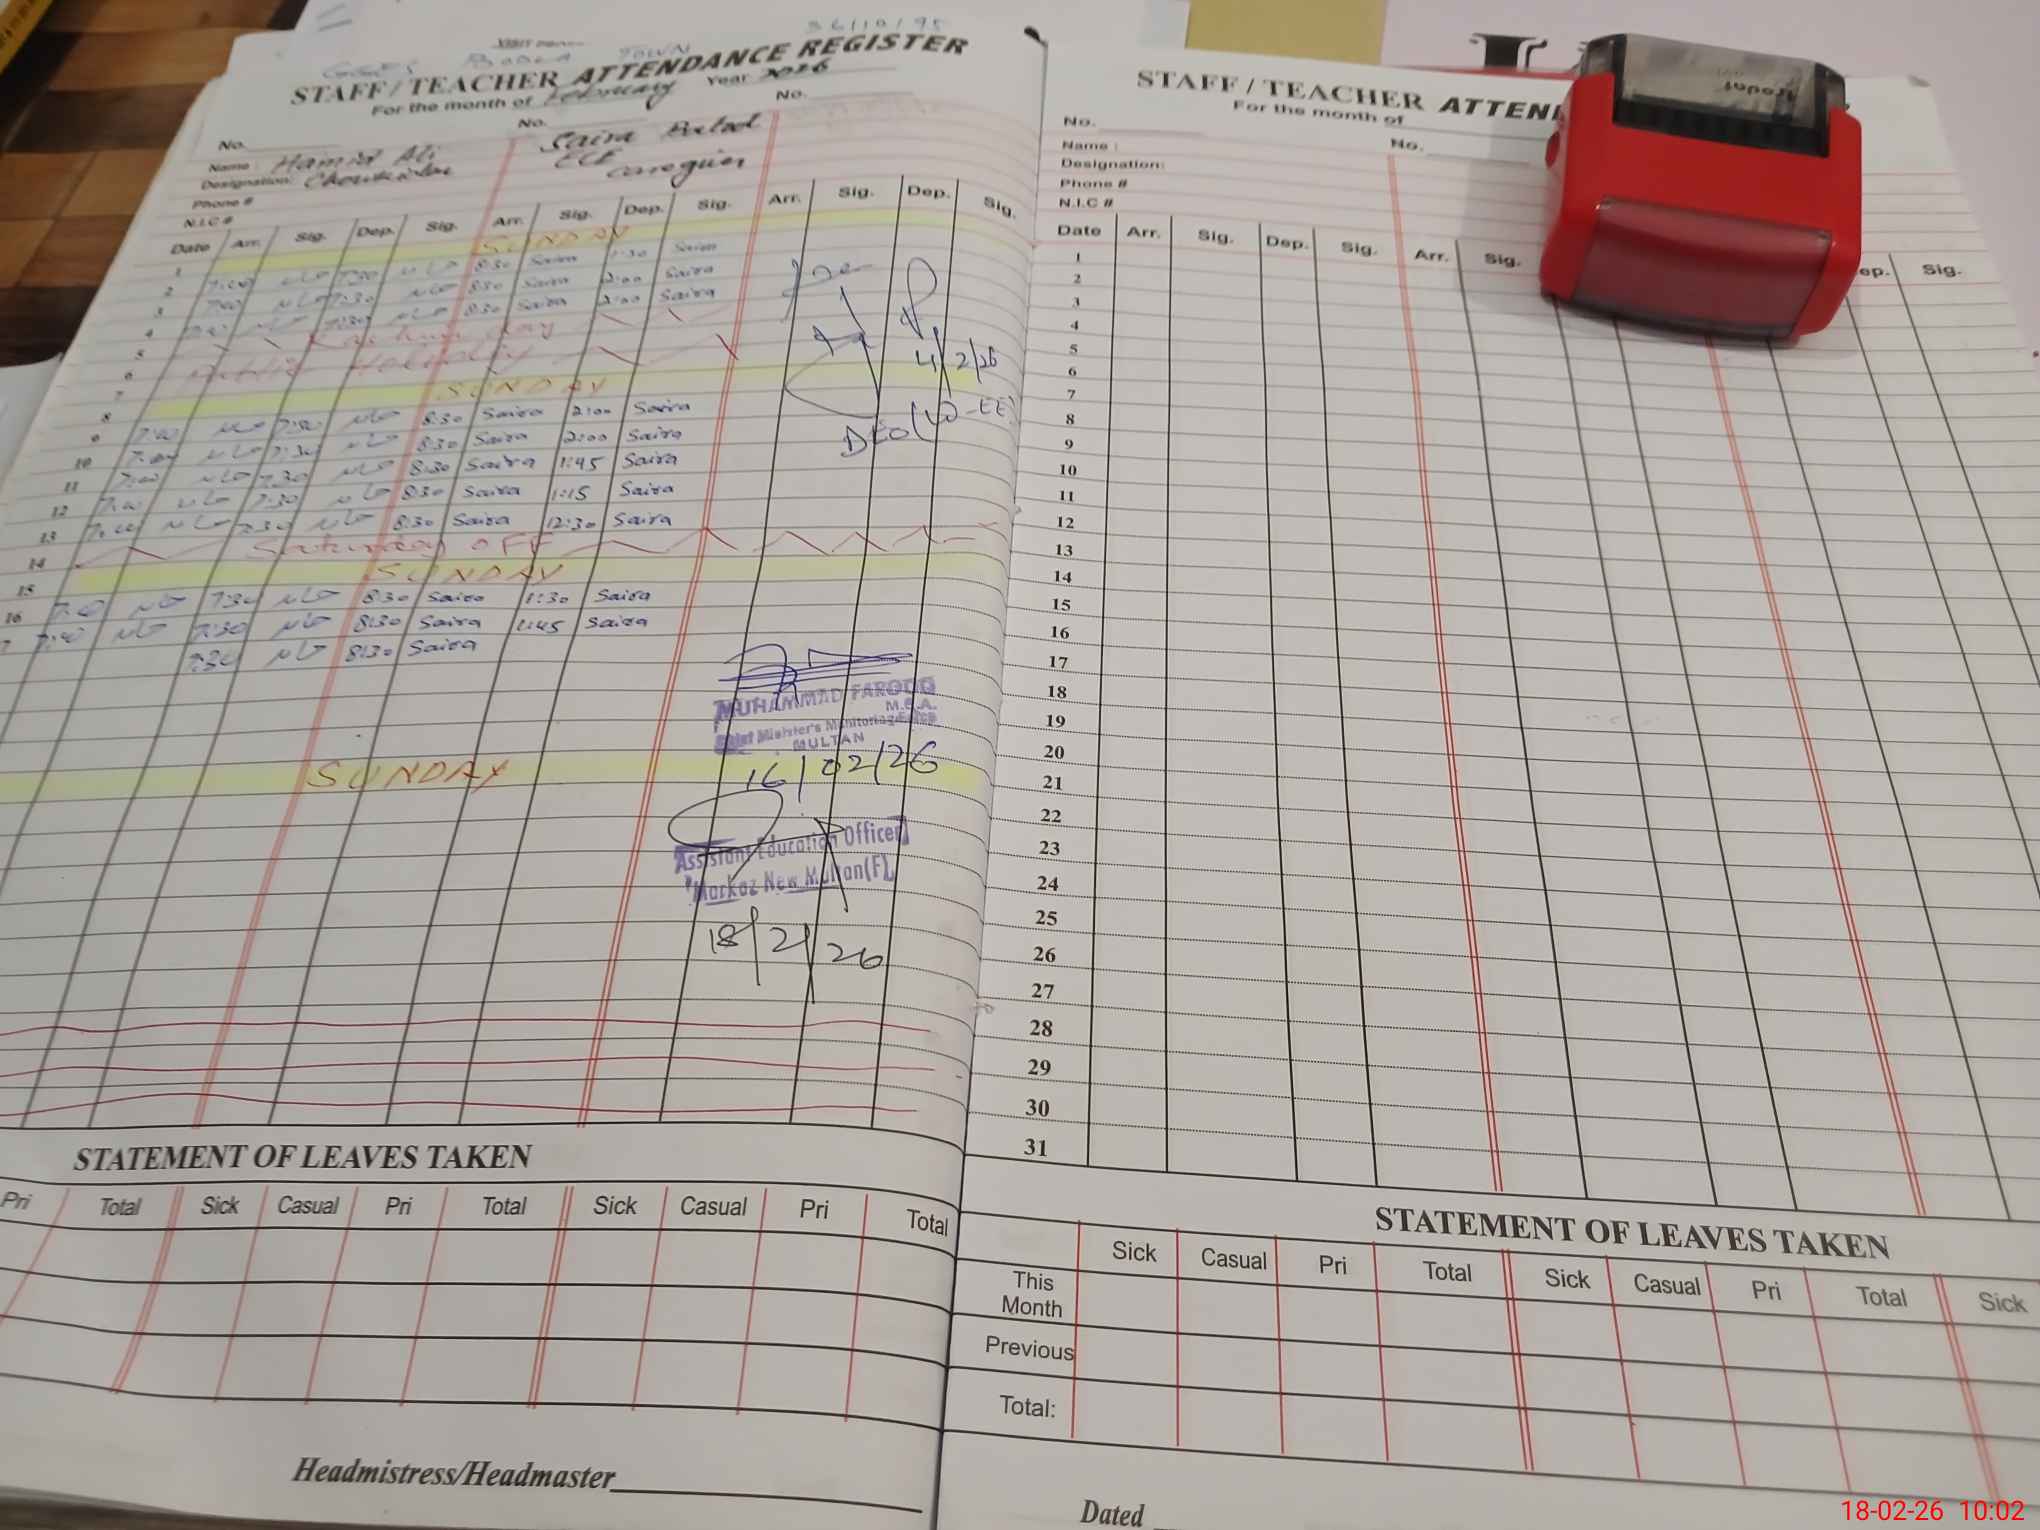 36110195
STAFF / TEACHER ATTENDANCE REGISTER
For the month of February Year 2026
No. No. No.
Name : Hamid Ali Saira
Designation: ECE
caregiver
Phone #
N.I.C #
Date Arr. Sig. Dep. Sig. Arr. Sig. Dep. Sig. Arr. Sig. Dep. Sig.
1 SUNDAY
2 7:00 7:30 8:30 Saira 1:30 Saira
3 7:00 7:30 8:30 Saira 2:00 Saira
4 7:30 8:30 Saira 2:00 Saira
5 Kashmir day
6 Public Holiday
7
8 SUNDAY
9 7:00 7:30 8:30 Saira 2:00 Saira
10 7:00 7:30 8:30 Saira 2:00 Saira
11 7:00 7:30 8:30 Saira 1:45 Saira
12 7:00 7:30 8:30 Saira 1:15 Saira
13 7:00 7:30 8:30 Saira 12:30 Saira
14 Saturday OFF
15 SUNDAY
16 7:00 7:30 8:30 Saira 1:30 Saira
7 7:30 8:30 Saira 1:45 Saira
7:30 8:30 Saira
SUNDAY
4/2/26
DEO (W-EE)
MUHAMMAD FAROOQ
M.E.A.
Chief Minister's Monitoring Force
MULTAN
16/02/26
Assistant Education Officer
Markaz New Multan(F)
18/2/26
STATEMENT OF LEAVES TAKEN
Pri Total Sick Casual Pri Total Sick Casual Pri Total
Headmistress/Headmaster
STAFF / TEACHER ATTEN
For the month of
No. No.
Name :
Designation:
Phone #
N.I.C #
Date Arr. Sig. Dep. Sig. Arr. Sig. ep. Sig.
1
2
3
4
5
6
7
8
9
10
11
12
13
14
15
16
17
18
19
20
21
22
23
24
25
26
27
28
29
30
31
STATEMENT OF LEAVES TAKEN
Sick Casual Pri Total Sick Casual Pri Total Sick
This
Month
Previous
Total:
Dated
18-02-26 10:02